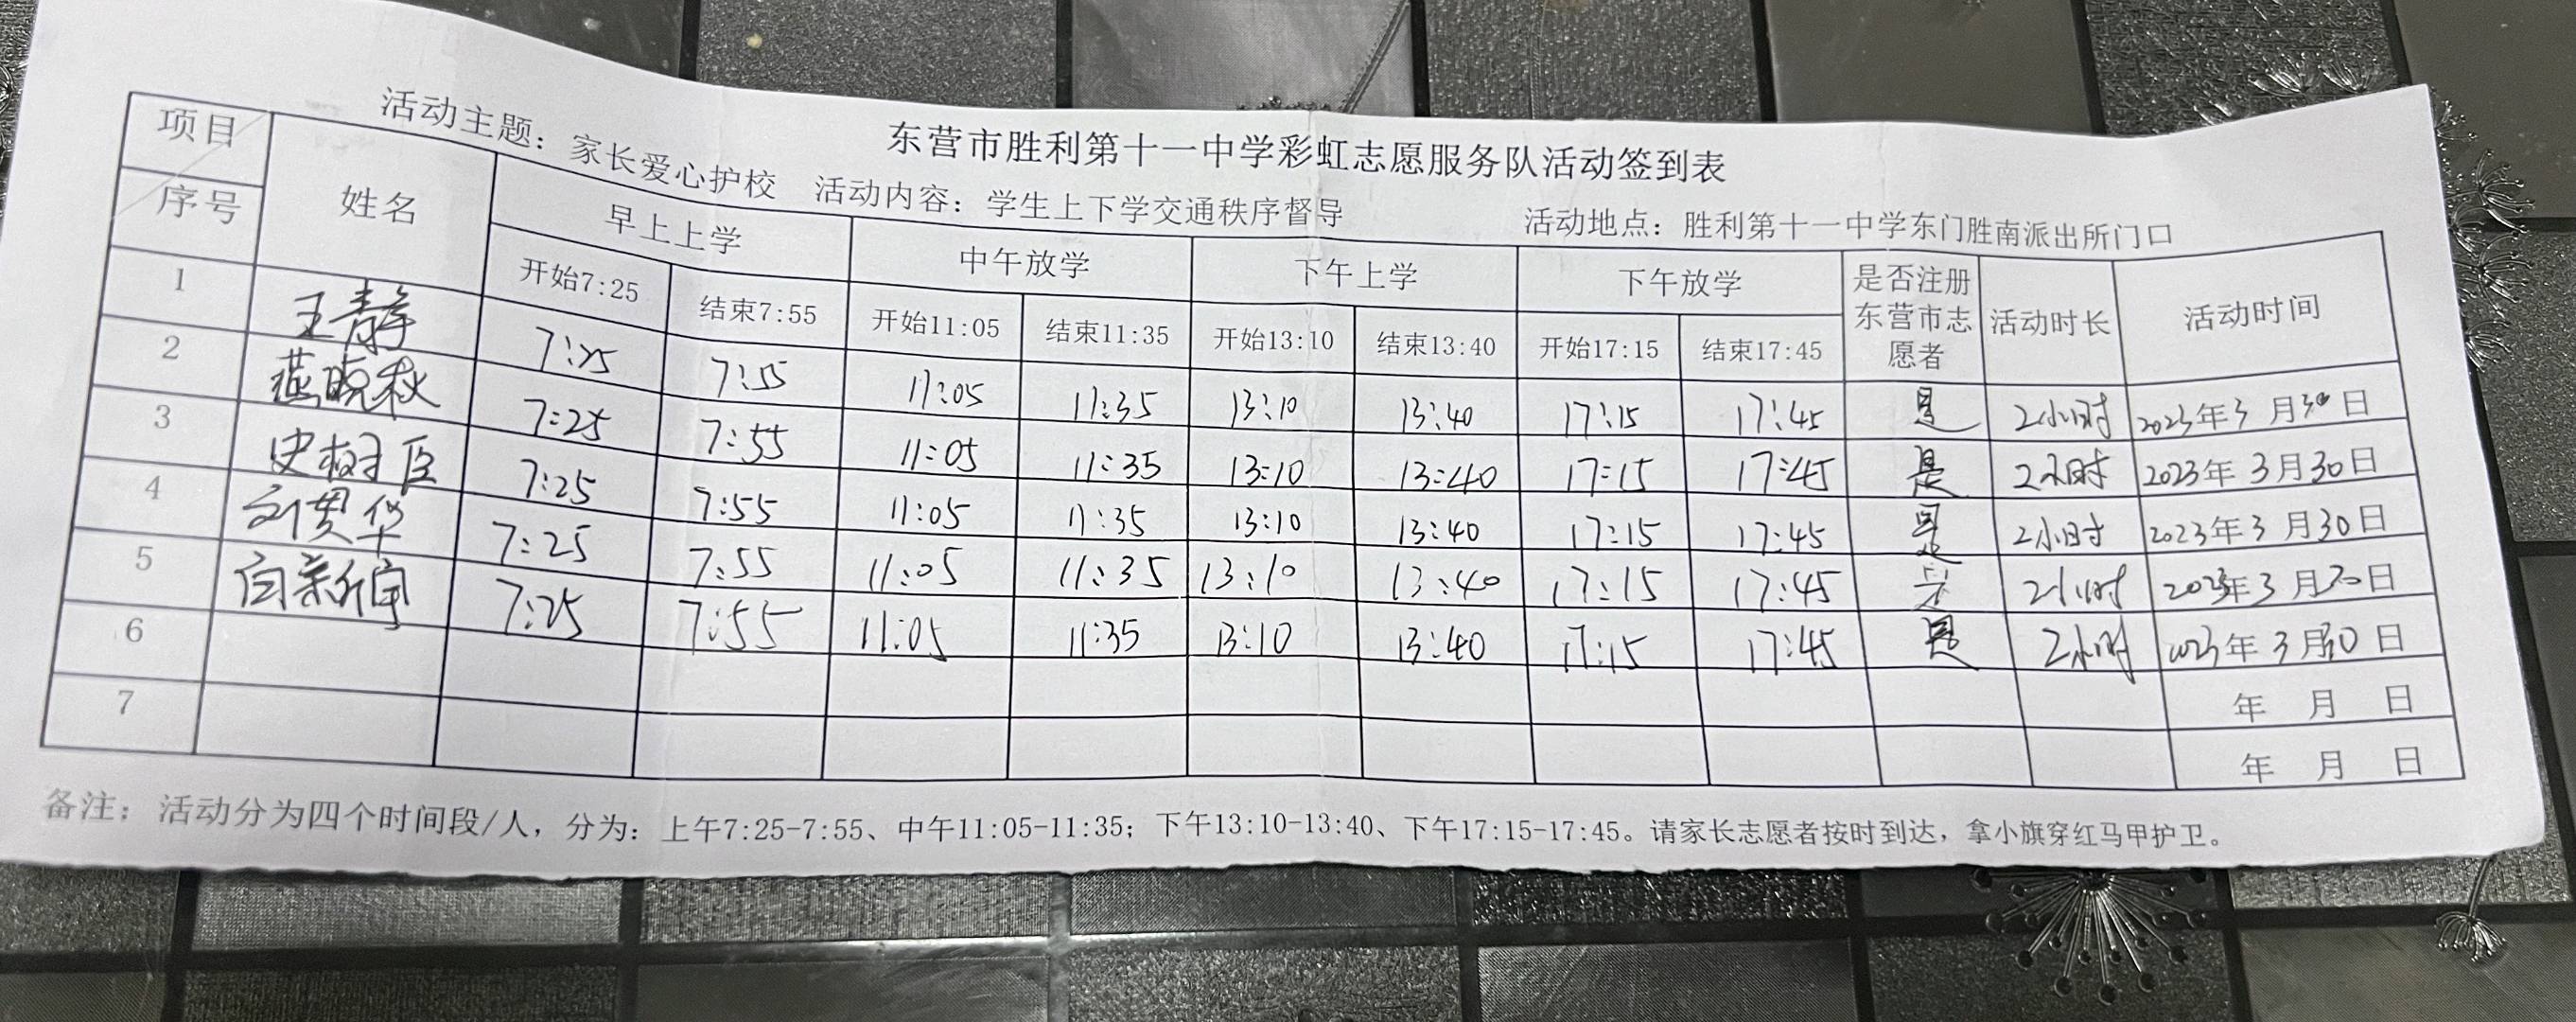 东营市胜利第十一中学彩虹志愿服务队活动签到表
活动主题：家长爱心护校 活动内容：学生上下学交通秩序督导 活动地点：胜利第十一中学东门胜南派出所门口
项目 序号 姓名 早上上学 中午放学 下午上学 下午放学 是否注册东营市志愿者 活动时长 活动时间
开始7:25 结束7:55 开始11:05 结束11:35 开始13:10 结束13:40 开始17:15 结束17:45
1 王青 7:25 7:55 11:05 11:35 13:10 13:40 17:15 17:45 是 2小时 2023年3月30日
2 燕晓秋 7:25 7:55 11:05 11:35 13:10 13:40 17:15 17:45 是 2小时 2023年3月30日
3 史树臣 7:25 7:55 11:05 11:35 13:10 13:40 17:15 17:45 是 2小时 2023年3月30日
4 刘贯华 7:25 7:55 11:05 11:35 13:10 13:40 17:15 17:45 是 2小时 2023年3月30日
5 7:25 7:55 11:05 11:35 13:10 13:40 17:15 17:45 是 2小时 2023年3月30日
6 年 月 日
7 年 月 日
备注：活动分为四个时间段/人，分为：上午7:25-7:55、中午11:05-11:35；下午13:10-13:40、下午17:15-17:45。请家长志愿者按时到达，拿小旗穿红马甲护卫。